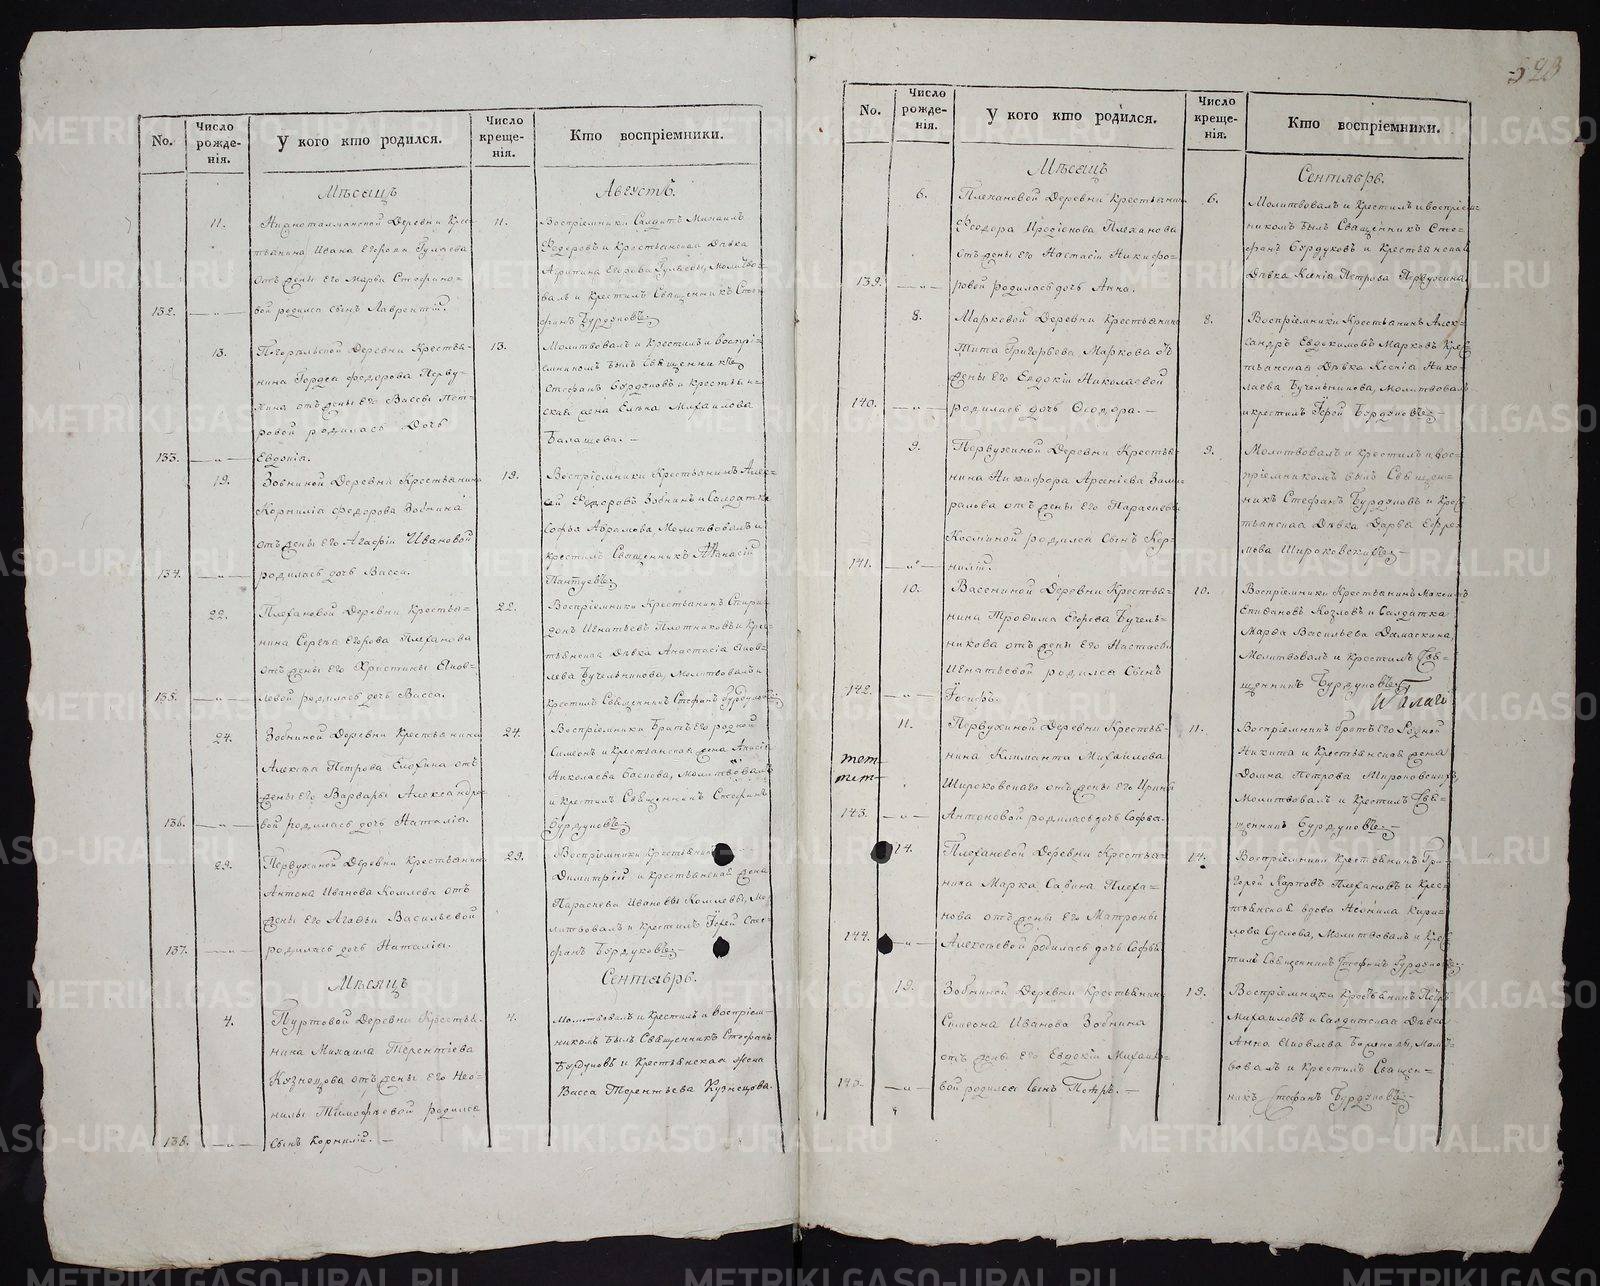 528
No.
Число рожде-нія.
У кого кто родился.
Число креще-нія.
Кто воспріемники.
Мѣсяцъ
Августъ.
11.
Деревни Крес-
тьянина Ивана Егорова Гуляева
отъ жены его Марѳы
132.
вой родился сынъ Лаврентій.
11.
Воспріемники Салдатъ Михаилъ
Ѳедоровъ и Крестьянская Дѣвка
Егорова Гуляева, Молитво-
валъ и Крестилъ Священникъ Сте-
фанъ Бурдуковъ.
13.
Деревни Крестья-
нина Гордея Федорова Перву-
хина отъ жены его Вассы Пет-
ровой родилась Дочь
133.
Евдокія.
13.
Молитвовалъ и Крестилъ и Воспрі-
емникомъ былъ Священникъ
Стефанъ Бурдуковъ и Крестьян-
ская жена Елена Михайлова
Балашова.
19.
Зобниной Деревни Крестьянина
Корнилія Федорова Зобнина
отъ жены его Агафіи Ивановой
134.
родилась дочь Васса.
19.
Воспріемники Крестьянинъ Алек-
сѣй Ѳедоровъ Зобнинъ и Салдатка
Софья Абрамова, Молитвовалъ и
крестилъ Священникъ Афанасій
Пантуевъ
22.
Плехановой Деревни Крестья-
нина Сергѣя Егорова Плеханова
отъ жены его Христины Яков-
135.
левой родилась дочь Васса.
22.
Воспріемники Крестьянинъ Спири-
донъ Игнатьевъ Плотниковъ и Крес-
тьянская Дѣвка Анастасія Яков-
лева Бучельникова, Молитвовалъ и
крестилъ Священникъ Стефанъ Бурдуковъ
24.
Зобниной Деревни Крестьянина
Алексѣя Петрова отъ
жены его Варвары Александро-
136.
вой родилась дочь Наталія.
24.
Воспріемники Братъ его родной
Симеонъ и Крестьянская жена
Николаева Молитвовалъ
и Крестилъ Священникъ Стефанъ
Бурдуковъ
29.
Первухиной Деревни Крестьянина
Антона Иванова Комлева отъ
жены его Агафьи Васильевой
137.
родилась дочь Наталія.
29.
Воспріемники Крестьянинъ
Димитрій и Крестьянская жена
Параскева Ивановы Комлевы, Мо-
литвовалъ и Крестилъ Іерей Сте-
фанъ Бурдуковъ
Мѣсяцъ
Сентябрь.
4.
Пуртовой Деревни Крестья-
нина Михаила Терентіева
Кузнецова отъ жены его Нео-
нилы Тимофѣевой родился
138.
сынъ Корнилій.
4.
Молитвовалъ и крестилъ и Воспріем-
никомъ былъ Священникъ Стефанъ
Бурдуковъ и Крестьянская жена
Васса Терентьева Кузнецова.
No.
Число рожде-нія.
У кого кто родился.
Число креще-нія.
Кто воспріемники.
Мѣсяцъ
Сентябрь.
6.
Плехановой Деревни Крестьянина
Ѳеодора Плеханова
отъ жены его Настасіи Никифо-
139.
ровой родилась дочь Анна.
6.
Молитвовалъ и Крестилъ и воспріем-
никомъ былъ Священникъ Сте-
фанъ Бурдуковъ и Крестьянская
Дѣвка Ксенія Петрова Первухина
8.
Марковой Деревни Крестьянина
Тита Григорьева Маркова отъ
жены его Евдокіи Николаевой
140.
родилась дочь Ѳеодора.
8.
Воспріемники Крестьянинъ Алек-
сандръ Евдокимовъ Марковъ Крес-
тьянская Дѣвка Ксенія Нико-
лаева Бучельникова, Молитвовалъ
и крестилъ Іерей Бурдуковъ
9.
Первухиной Деревни Крестья-
нина Никифора Арсеніева
отъ жены его Параскевы
Космыной родился Сынъ Кор-
141.
нилій.
9.
Молитвовалъ и крестилъ и Вос-
пріемникомъ былъ Священ-
никъ Стефанъ Бурдуковъ и Крес-
тьянская Дѣвка Дарья Ефре-
мова
10.
Деревни Крестья-
нина Трофима Егорова Бучель-
никова отъ жены его Настасьи
Игнатьевой родился Сынъ
142.
Іосифъ.
10.
Воспріемники Крестьянинъ Максимъ
Епифановъ Козловъ и Салдатка
Марѳа Васильева Дамаскина,
Молитвовалъ и Крестилъ Свя-
щенникъ Бурдуковъ
11.
Первухиной Деревни Крестья-
нина Климента Михайлова
Широковскаго отъ жены его Ирины
143.
Антоновой родилась дочь Софья.
11.
Воспріемники братъ его Родной
Никита и Крестьянская жена
Домна Петрова
Молитвовалъ и Крестилъ Свя-
щенникъ Бурдуковъ
14.
Плехановой Деревни Крестья-
нина Марка Савина Плеха-
нова отъ жены его Матроны
144.
Алексѣевой родилась дочь Софья
14.
Воспріемники Крестьянинъ Гри-
горій Карповъ Плехановъ и Крес-
тьянская вдова Неонила Кири-
лова Суслова, Молитвовалъ и Крес-
тилъ Священникъ Стефанъ Бурдуковъ
19.
Зобниной Деревни Крестьянина
Симеона Иванова Зобнина
отъ жены его Евдокіи Михайло-
145.
вой родился Сынъ Петръ.
19.
Воспріемники Крестьянинъ Петръ
Михайловъ и Салдатская Дѣвка
Анна Яковлева
вовалъ и Крестилъ Священ-
никъ Стефанъ Бурдуковъ
METRIKI.GASO-URAL.RU